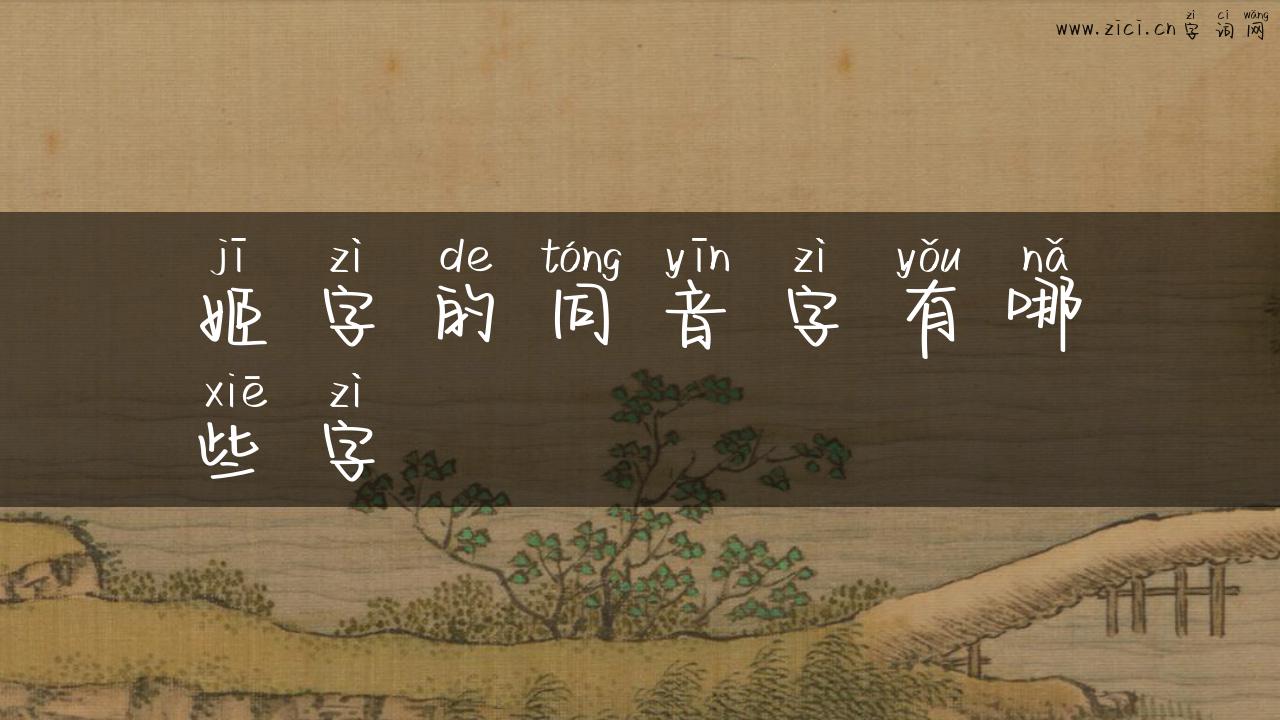 zì cí wǎng
www.zici.cn 字 词 网
jī zì de tóng yīn zì yǒu nǎ
姬 字 的 同 音 字 有 哪
xiē zì
些 字